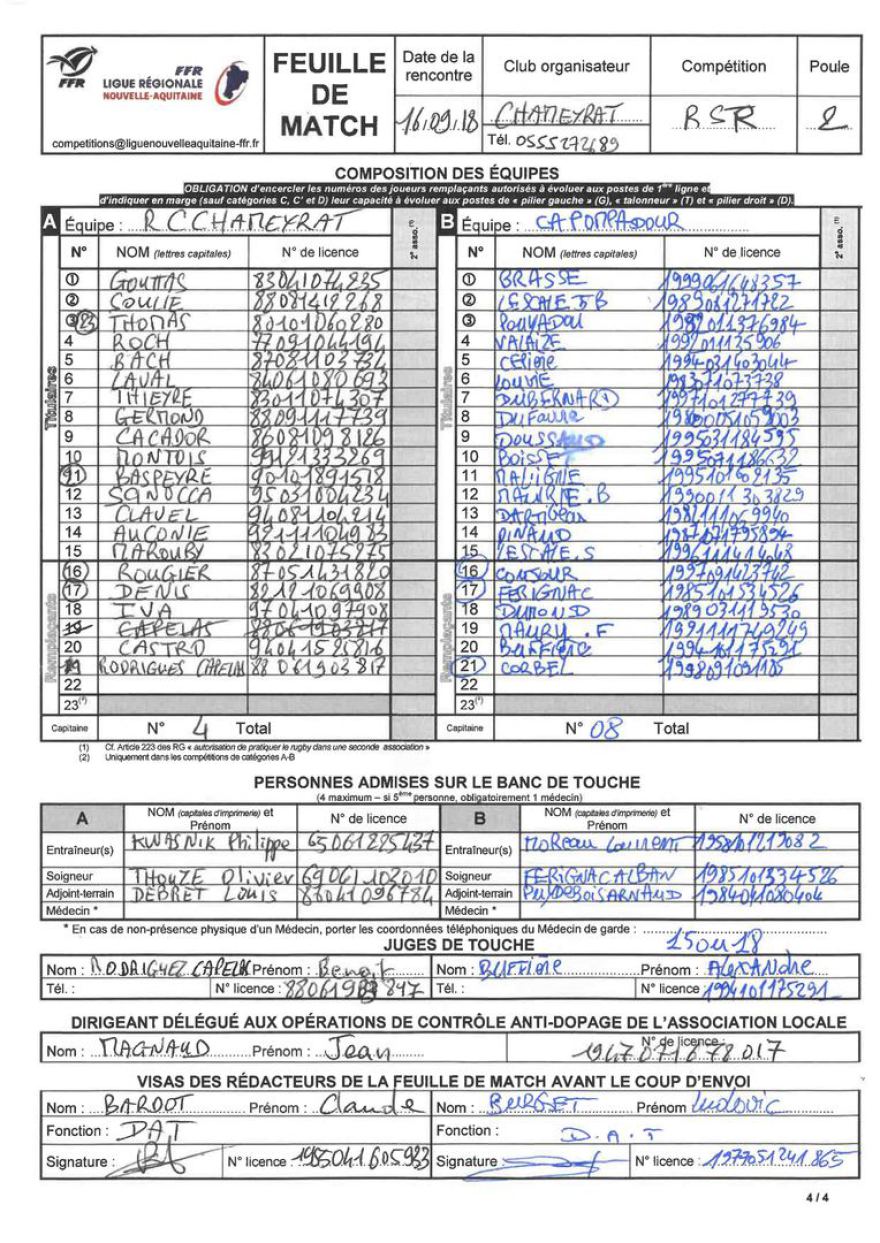 FFR
FFR
LIGUE RÉGIONALE
NOUVELLE-AQUITAINE
competitions@liguenouvelleaquitaine-ffr.fr
FEUILLE DE MATCH
Date de la rencontre
16.09.18
Club organisateur
CHAMEYRAT
Tél. 0555272689
Compétition
RSR
Poule
2
COMPOSITION DES ÉQUIPES
OBLIGATION d'encercler les numéros des joueurs remplaçants autorisés à évoluer aux postes de 1ère ligne et
d'indiquer en marge (sauf catégories C, C' et D) leur capacité à évoluer aux postes de « pilier gauche » (G), « talonneur » (T) et « pilier droit » (D).
A Équipe : R C CHAMEYRAT 2e asso. (1)
N° NOM (lettres capitales) N° de licence
Titulaires
1 GOUTTAS 83041074235
2 COULIE 88081412268
3 23 THOMAS 80101060280
4 ROCH 77091044194
5 BACH 87081103734
6 LAVAL 84061080693
7 THIEYRE 83011074307
8 GERMOND 88091117739
9 CACADOR 86081098126
10 MONTOIS 99121333269
11 BASPEYRE 90101891518
12 SANOCCA 95031004234
13 CLAVEL 94081104214
14 AUCONIE 99111104983
15 MAROUBY 83021075275
Remplaçants
16 ROUGIER 87051431820
17 DENIS 82121069908
18 IVA 97041097908
19 CAPELAS 88061903817
20 CASTRO 94041528816
21 RODRIGUES CAPELAS 88061903817
22
23(*)
Capitaine N° 4 Total
B Équipe : CA POMPADOUR 2e asso. (1)
N° NOM (lettres capitales) N° de licence
Titulaires
1 BRASSE 1999061648357
2 LESCALE JB 1989081271782
3 POUYADOU 1982011376984
4 VALAIZE
5 CELIERE 1994031403044
6 LOUVIE 1983071073738
7 DUBERNARD 1997101277739
8 DUFAURE
9 DOUSSAUD 1995031184595
10 BOISSE 1995071186632
11 MALIGNE
12 MAURIE.B 1990011303829
13 DARTIGEAX
14 PINAUD 1987071795894
15 LESCALE.S 1996111414648
Remplaçants
16 CONSOUR 1997091423742
17 FERIGNAC 1985101334526
18 DUMOND 1989031119530
19 MAURY.F 1991111749249
20 BUFFIERE 1994101175291
21 CORBEL 1998091091105
22
23(*)
Capitaine N° 08 Total
(1) Cf. Article 223 des RG « autorisation de pratiquer le rugby dans une seconde association »
(2) Uniquement dans les compétitions de catégories A-B
PERSONNES ADMISES SUR LE BANC DE TOUCHE
(4 maximum – si 5ème personne, obligatoirement 1 médecin)
A NOM (capitales d'imprimerie) et Prénom N° de licence
Entraîneur(s) KWASNIK Philippe 65061225437
Soigneur THOUZE Olivier 69061102010
Adjoint-terrain DEBRET Louis 87041096784
Médecin *
B NOM (capitales d'imprimerie) et Prénom N° de licence
Entraîneur(s) MOREAU Laurent 1958101219082
Soigneur FERIGNAC ALBAN 1985101334526
Adjoint-terrain PUYDEBOIS ARNAUD 1984041080404
Médecin *
* En cas de non-présence physique d'un Médecin, porter les coordonnées téléphoniques du Médecin de garde : 15 ou 18
JUGES DE TOUCHE
Nom : RODRIGUEZ CAPELAS Prénom : Benoit
Tél. : N° licence : 88061903 847
Nom : BUFFIERE Prénom : ALEXANDRE
Tél. : N° licence : 1994101175291
DIRIGEANT DÉLÉGUÉ AUX OPÉRATIONS DE CONTRÔLE ANTI-DOPAGE DE L'ASSOCIATION LOCALE
Nom : MAGNAUD Prénom : Jean N° de licence : 1947071678017
VISAS DES RÉDACTEURS DE LA FEUILLE DE MATCH AVANT LE COUP D'ENVOI
Nom : BARDOT Prénom : Claude
Fonction : DAT
Signature : N° licence : 1955041605983
Nom : BURGET Prénom Ludovic
Fonction : D.A.T
Signature : N° licence : 1977051241865
4 / 4